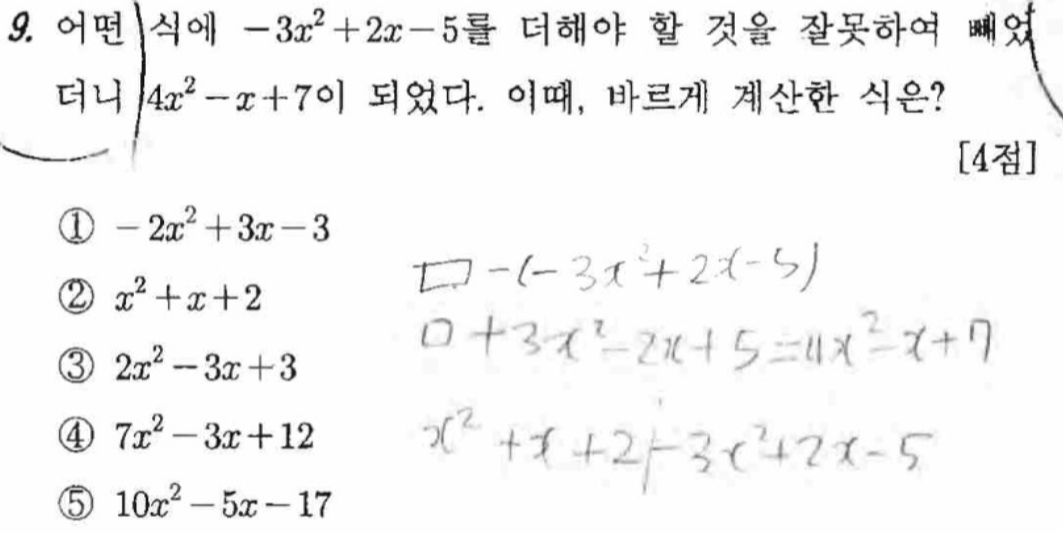 9. 어떤 식에 −3x²+2x−5를 더해야 할 것을 잘못하여 빼었
더니 4x²−x+7이 되었다. 이때, 바르게 계산한 식은?
[4점]
① −2x²+3x−3
② x²+x+2
③ 2x²−3x+3
④ 7x²−3x+12
⑤ 10x²−5x−17
□−(−3x²+2x−5)
□+3x²−2x+5=4x²−x+7
x²+x+2−3x²+2x−5